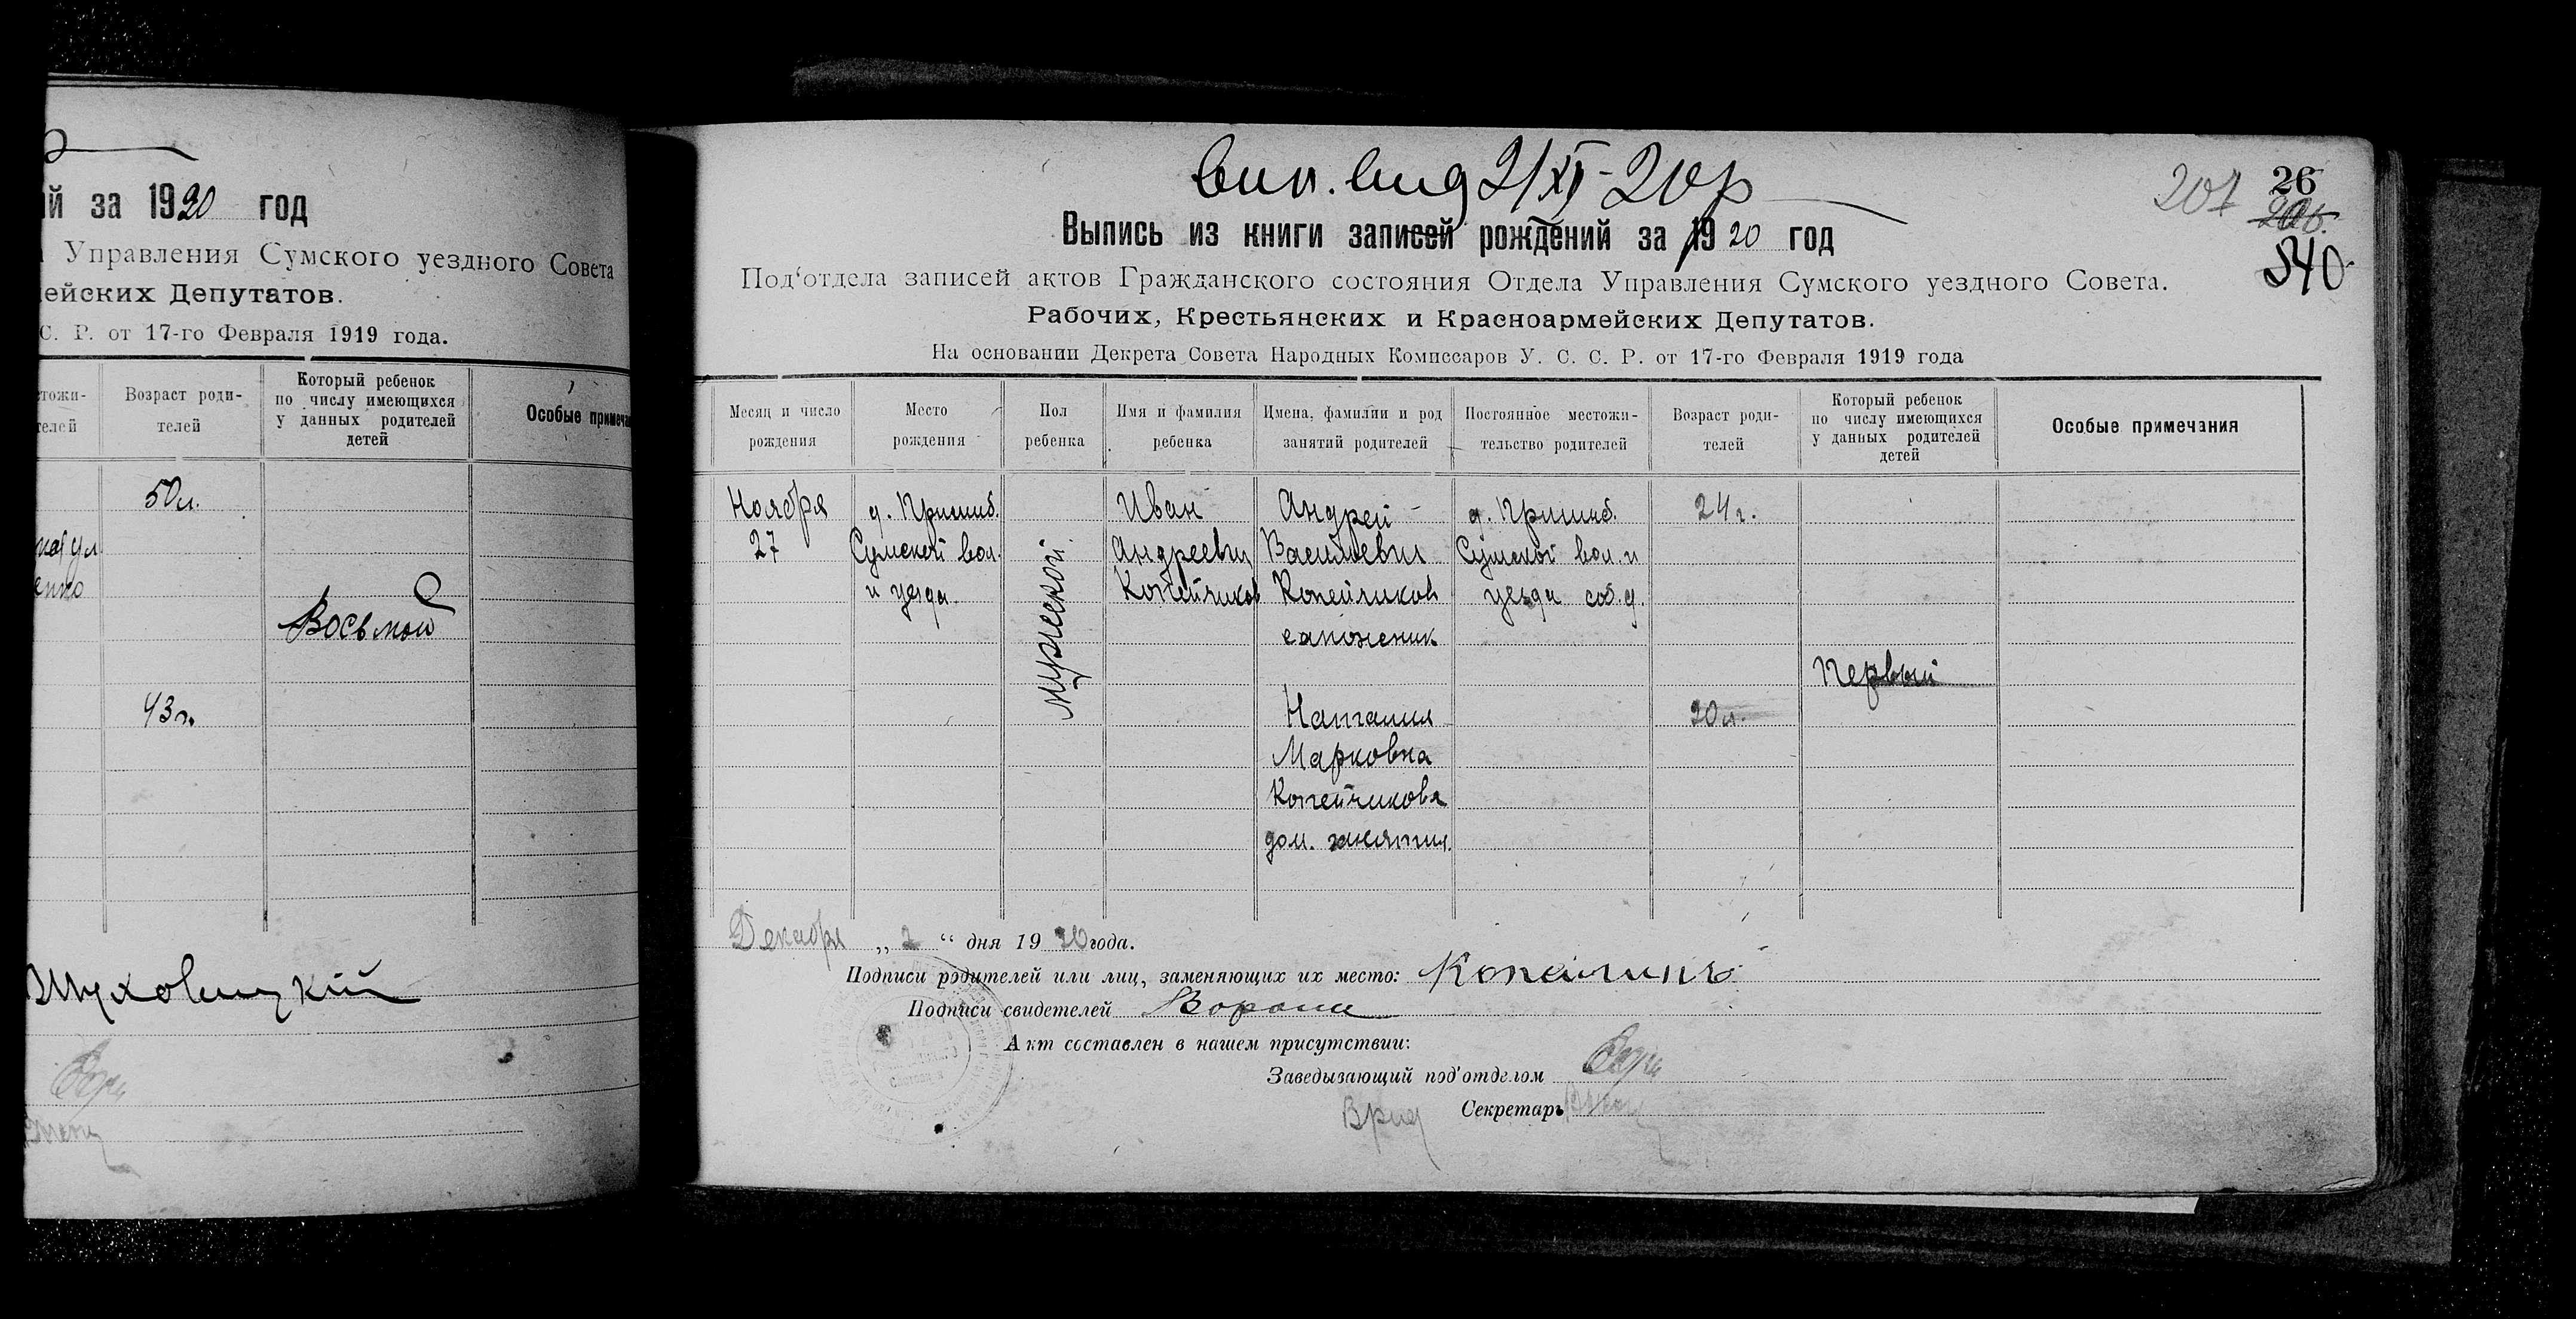 й за 1920 год
Управления Сумского уездного Совета
ейских Депутатов.
С. Р. от 17-го Февраля 1919 года.
Возраст роди-
телей
Который ребенок
по числу имеющихся
у данных родителей
детей
Особые примеча
50 л.
Восьмой
43 г.
Шуховицкій
вип. вид 2/XI-20 р
207
26
206.
540
Выпись из книги записей рождений за 1920 год
Под'отдела записей актов Гражданского состояния Отдела Управления Сумского уездного Совета.
Рабочих, Крестьянских и Красноармейских Депутатов.
На основании Декрета Совета Народных Комиссаров У. С. С. Р. от 17-го Февраля 1919 года
Месяц и число
рождения
Место
рождения
Пол
ребенка
Имя и фамилия
ребенка
Имена, фамилии и род
занятий родителей
Постоянное местожи-
тельство родителей
Возраст роди-
телей
Который ребенок
по числу имеющихся
у данных родителей
детей
Особые примечания
Ноября
27
д. Пришиб.
Сумской вол.
и уезда
мужеской.
Иван
Андреевич
Копейчиков
Андрей
Васильевич
Копейчиков
сапожник
Наталия
Марковна
Копейчикова
дом. занятия.
д. Пришиб.
Сумской вол. и
уезда соб. д.
24 г.
20 л.
Первый
Декабря „ 2 “ дня 1920 года.
Подписи родителей или лиц, заменяющих их место:
Подписи свидетелей Ворона
Акт составлен в нашем присутствии:
Заведывающий под'отделом
Врид Секретарь